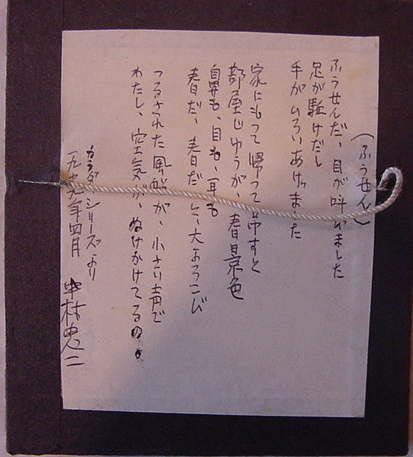 (ふうせん)
ふうせんだ、目が叫びました
足が駈けだし
手がひろいあげました
家にもって帰って吊すと
部屋じゆうが、春景色
鼻も、目も、耳も
春だ、春だと、大よろこび
つるされた風船が、小さい声で
わたし、空気が、ぬけかけてるの。
カラダシリーズより
一九七九年四月 中村忠二